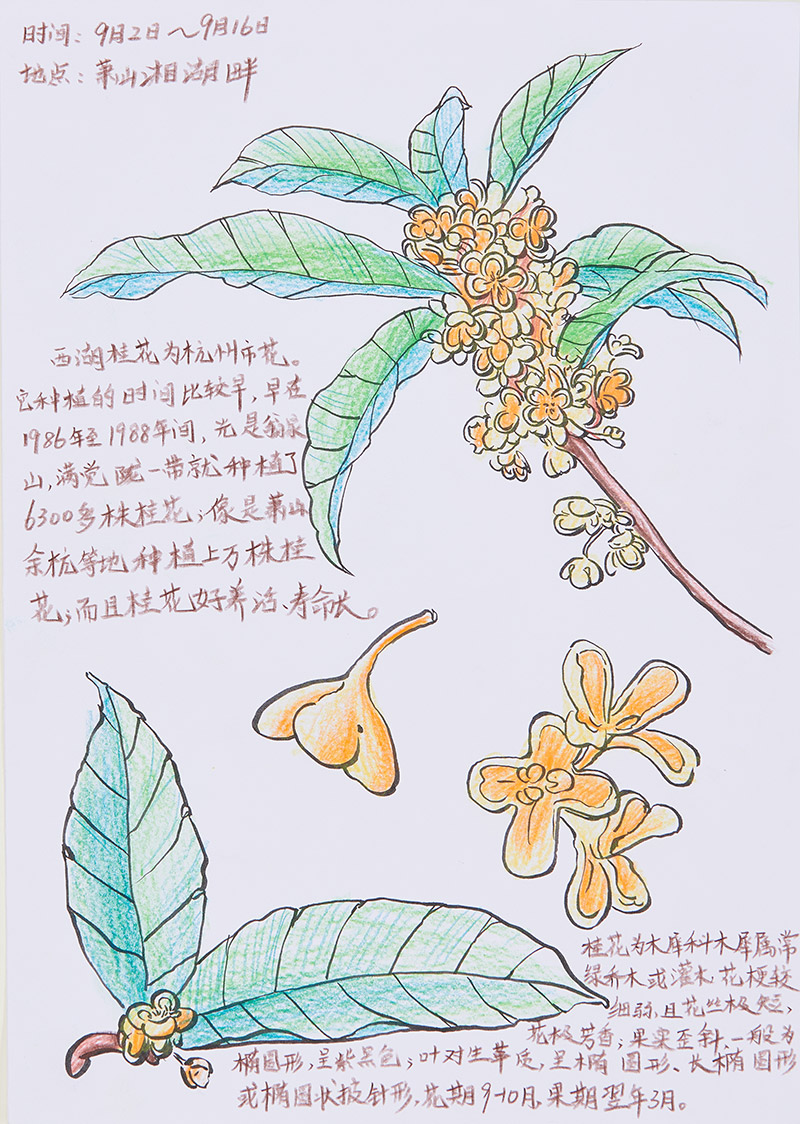 时间：9月2日～9月16日
地点：萧山湘湖畔
西湖桂花为杭州市花。
它种植的时间比较早，早在
1986年至1988年间，光是翁家
山，满觉陇一带就种植了
6300多株桂花；像是萧山
余杭等地种植上万株桂
花；而且桂花好养活、寿命长。
桂花为木犀科木犀属常
绿乔木或灌木.花梗较
细弱，且花丝极短，
花极芳香；果实歪斜、一般为
椭圆形，呈紫黑色；叶对生革质，呈椭圆形、长椭圆形
或椭圆状披针形，花期9-10月，果期翌年3月。